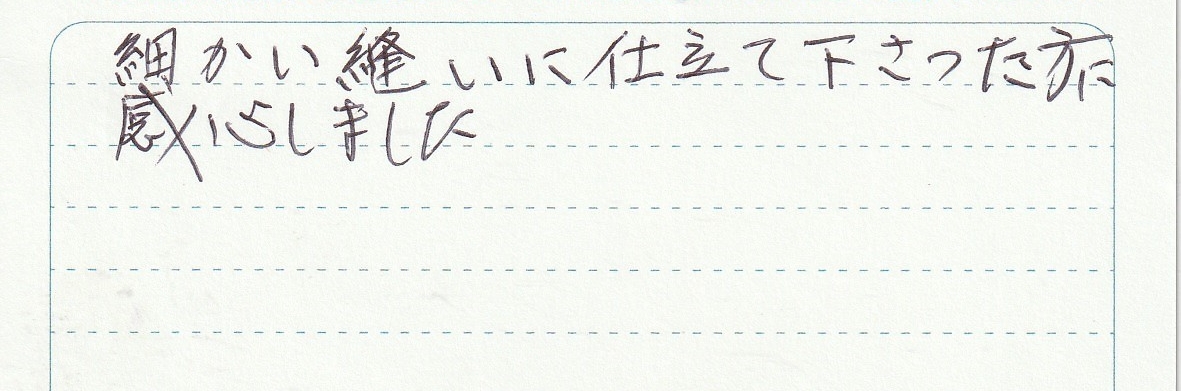 細かい縫いに仕立て下さった方に
感心しました